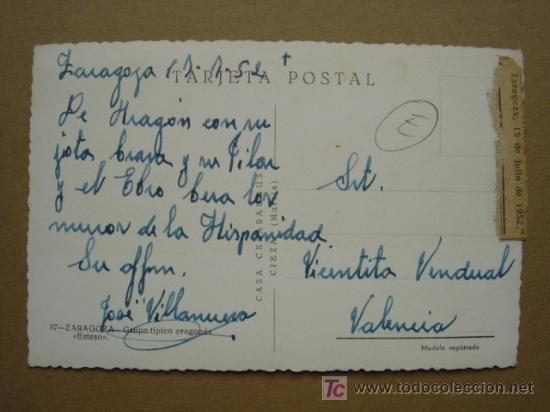 Zaragoza 17.7.52 †
TARJETA POSTAL
De Aragón con su
jota brava y su Pilar
y el Ebro besa los
muros de la Hispanidad
Su affmo.
José Villanueva
Srt.
Vicentita Vendual
Valencia
E
Zaragoza, 15 de Julio de 1952.
CIEZA (Murcia)
97—ZARAGOZA - Grupo típico aragonés
«Esteso».
Modelo registrado
TC
todocoleccion
www.todocoleccion.net